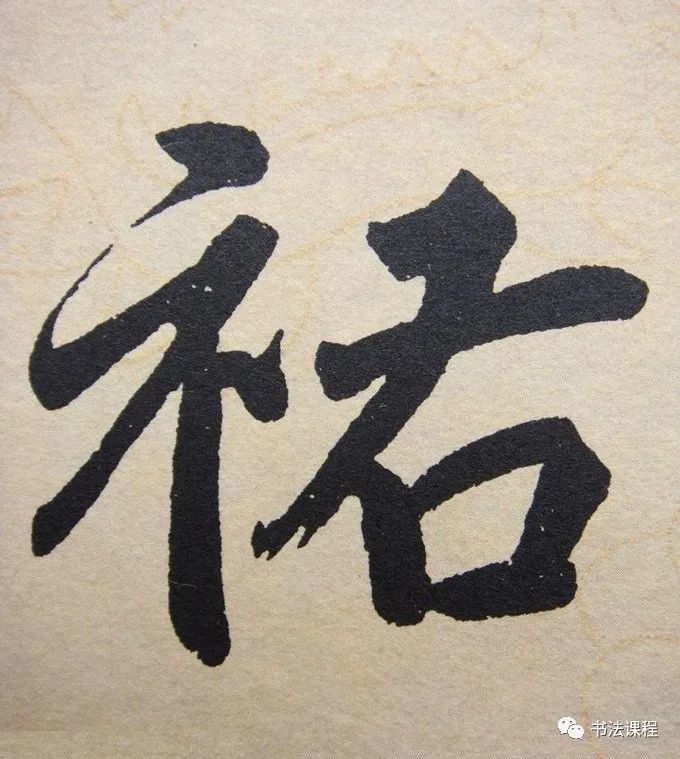 祐
书法课程